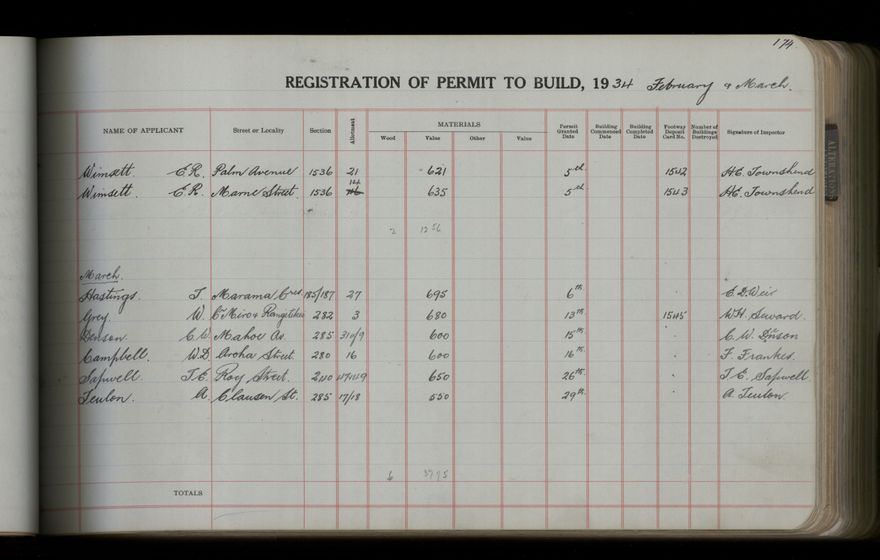 174
REGISTRATION OF PERMIT TO BUILD, 1934 February & March.
NAME OF APPLICANT Street or Locality Section Allotment MATERIALS Wood Value Other Value Permit Granted Date Building Commenced Date Building Completed Date Footway Deposit Card No. Number of Buildings Destroyed Signature of Inspector
Wimsett. E.R. Palm Avenue 1536 21 621 5th 1542 H.E. Townshend
Wimsett. E.R. Marne Street. 1536 14 635 5th 1543 H.E. Townshend
2 1256
March.
Hastings. T. Marama Cres 185/187 27 695 6th E.D. Weir
Grey. W. Cr Miro & Rangitikei 282 3 680 13th 1545 W.H. Seward.
Denson. C.W. Mahoe Av. 285 3 of 9 600 15th C.W. Denson
Campbell. W.D. Aroha Street 280 16 600 16th F. Frankes.
Sapwell T.E. Roy Street. 240 650 26th T.E. Sapwell
Teulon. A. Clausen St. 285 17/18 550 29th A Teulon.
6 3775
TOTALS